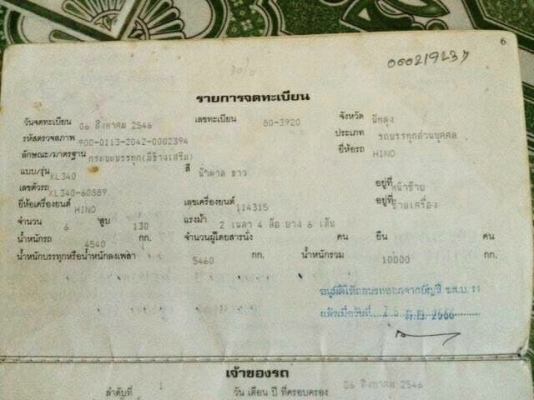 6
00021923
รายการจดทะเบียน
วันจดทะเบียน 06 สิงหาคม 2546 เลขทะเบียน 80-3920 จังหวัด พัทลุง
รหัสตรวจสภาพ 900-0113-2042-0002394 ประเภท รถบรรทุกส่วนบุคคล
ลักษณะ/มาตรฐาน กระบะบรรทุก(มีข้างเสริม) ยี่ห้อรถ HINO
แบบ/รุ่น KL340 สี น้ำตาล ขาว
เลขตัวรถ KL340-60889 อยู่ที่ หน้าซ้าย
ยี่ห้อเครื่องยนต์ HINO เลขเครื่องยนต์ 114315 อยู่ที่ ซ้ายเครื่อง
จำนวน 6 สูบ 130 แรงม้า 2 เพลา 4 ล้อ ยาง 6 เส้น
น้ำหนักรถ 4540 กก. จำนวนผู้โดยสารนั่ง คน ยืน คน
น้ำหนักบรรทุกหรือน้ำหนักลงเพลา 5460 กก. น้ำหนักรวม 10000 กก.
แล้วเมื่อวันที่
เจ้าของรถ
ลำดับที่ 1 วัน เดือน ปี ที่ครอบครอง 06 สิงหาคม 2546